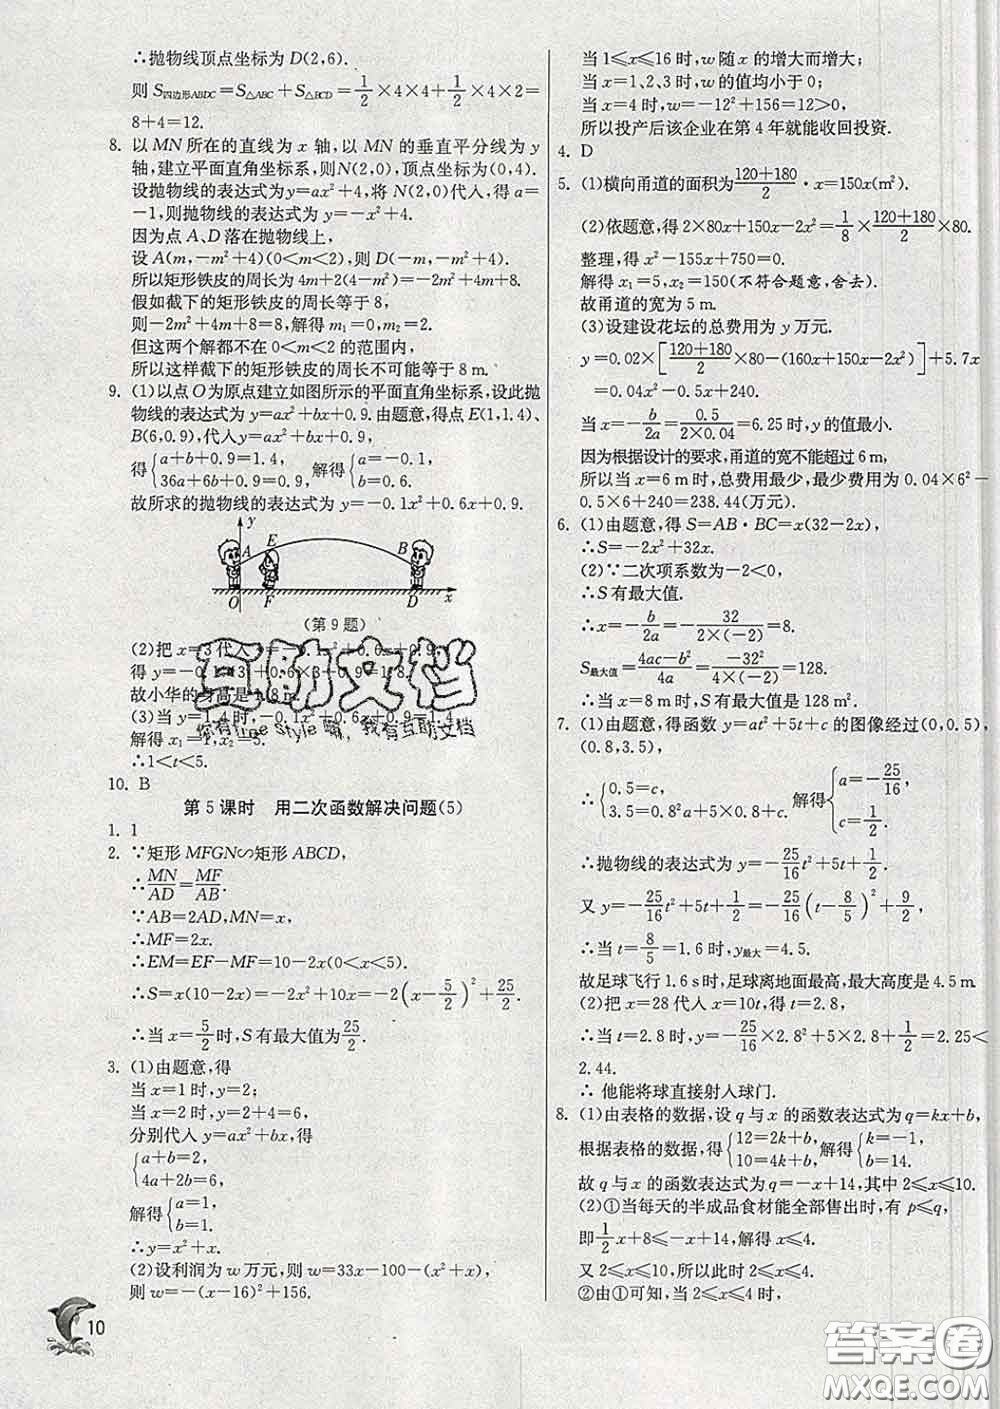 ∴抛物线顶点坐标为D(2,6).
则S四边形ABDC=S△ABC+S△BCD=1/2×4×4+1/2×4×2=
8+4=12.
8. 以MN所在的直线为x轴,以MN的垂直平分线为y
轴,建立平面直角坐标系,则N(2,0),顶点坐标为(0,4).
设抛物线的表达式为y=ax²+4,将N(2,0)代入,得a=
-1,则抛物线的表达式为y=-x²+4.
因为点A、D落在抛物线上,
设A(m,-m²+4)(0<m<2),则D(-m,-m²+4).
所以矩形铁皮的周长为4m+2(4-m²)=-2m²+4m+8.
假如截下的矩形铁皮的周长等于8,
则-2m²+4m+8=8,解得m₁=0,m₂=2.
但这两个解都不在0<m<2的范围内,
所以这样截下的矩形铁皮的周长不可能等于8 m.
9. (1)以点O为原点建立如图所示的平面直角坐标系,设此抛
物线的表达式为y=ax²+bx+0.9.由题意,得点E(1,1.4)、
B(6,0.9),代入y=ax²+bx+0.9,
得{a+b+0.9=1.4, 36a+6b+0.9=0.9. 解得{a=-0.1, b=0.6.
故所求的抛物线的表达式为y=-0.1x²+0.6x+0.9.
y
A E B
O F D x
(第9题)
(2)把x=3代入y=-0.1x²+0.6x+0.9,
得y=-0.1×3²+0.6×3+0.9=1.8.
故小华的身高是1.8 m.
(3)当y=1.4时,-0.1x²+0.6x+0.9=1.4,
解得x₁=1,x₂=5.
∴1<t<5.
互助文档
你有free style嘛,我有互助文档
10. B
第5课时 用二次函数解决问题(5)
1. 1
2. ∵矩形MFGN∽矩形ABCD,
∴MN/AD=MF/AB.
∵AB=2AD,MN=x,
∴MF=2x.
∴EM=EF-MF=10-2x(0<x<5).
∴S=x(10-2x)=-2x²+10x=-2(x-5/2)²+25/2.
∴当x=5/2时,S有最大值为25/2.
3. (1)由题意,得
当x=1时,y=2;
当x=2时,y=2+4=6,
分别代入y=ax²+bx,得
{a+b=2, 4a+2b=6,
解得{a=1, b=1.
∴y=x²+x.
(2)设利润为w万元,则w=33x-100-(x²+x),
则w=-(x-16)²+156.
10
当1≤x≤16时,w随x的增大而增大;
当x=1、2、3时,w的值均小于0;
当x=4时,w=-12²+156=12>0,
所以投产后该企业在第4年就能收回投资.
4. D
5. (1)横向甬道的面积为(120+180)/2·x=150x(m²).
(2)依题意,得2×80x+150x-2x²=1/8×(120+180)/2×80.
整理,得x²-155x+750=0.
解得x₁=5,x₂=150(不符合题意,舍去).
故甬道的宽为5 m.
(3)设建设花坛的总费用为y万元.
y=0.02×[(120+180)/2×80-(160x+150x-2x²)]+5.7x
=0.04x²-0.5x+240.
当x=-b/2a=0.5/(2×0.04)=6.25时,y的值最小.
因为根据设计的要求,甬道的宽不能超过6 m,
所以当x=6 m时,总费用最少,最少费用为0.04×6²-
0.5×6+240=238.44(万元).
6. (1)由题意,得S=AB·BC=x(32-2x),
∴S=-2x²+32x.
(2)∵二次项系数为-2<0,
∴S有最大值.
∴x=-b/2a=-32/(2×(-2))=8.
S最大值=(4ac-b²)/4a=-32²/(4×(-2))=128.
∴当x=8 m时,S有最大值是128 m².
7. (1)由题意,得函数y=at²+5t+c的图像经过(0,0.5),
(0.8,3.5),
∴{0.5=c, 3.5=0.8²a+5×0.8+c. 解得{a=-25/16, c=1/2.
∴抛物线的表达式为y=-25/16t²+5t+1/2.
又y=-25/16t²+5t+1/2=-25/16(t-8/5)²+9/2,
∴当t=8/5=1.6时,y最大=4.5.
故足球飞行1.6 s时,足球离地面最高,最大高度是4.5 m.
(2)把x=28代入x=10t,得t=2.8,
∴当t=2.8时,y=-25/16×2.8²+5×2.8+1/2=2.25<
2.44.
∴他能将球直接射入球门.
8. (1)由表格的数据,设q与x的函数表达式为q=kx+b,
根据表格的数据,得{12=2k+b, 10=4k+b, 解得{k=-1, b=14.
故q与x的函数表达式为q=-x+14,其中2≤x≤10.
(2)①当每天的半成品食材能全部售出时,有p≤q,
即1/2x+8≤-x+14,解得x≤4.
又2≤x≤10,所以此时2≤x≤4.
②由①可知,当2≤x≤4时,
答案圈
MXQE.COM